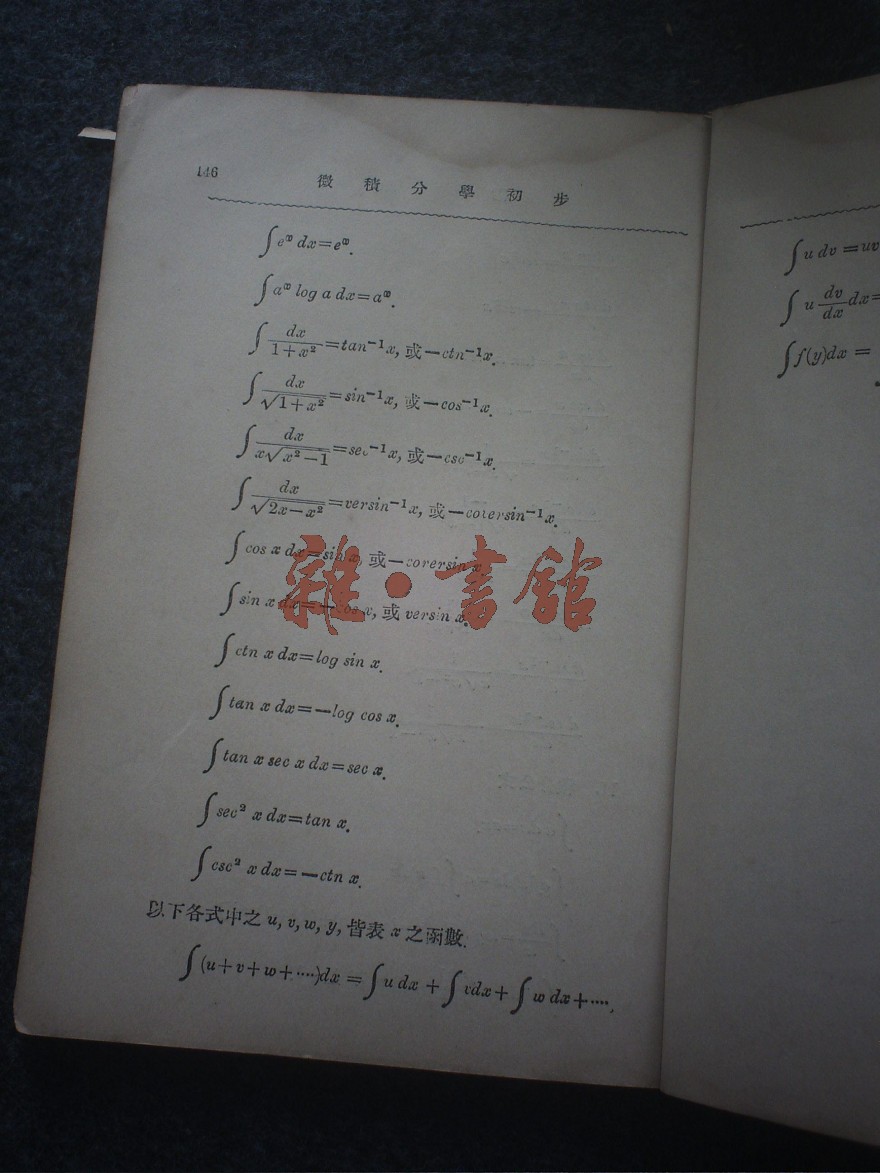 146
微積分學初步
∫e^x dx=e^x.
∫a^x log a dx=a^x.
∫dx/(1+x²)=tan⁻¹x, 或—ctn⁻¹x.
∫dx/√(1+x²)=sin⁻¹x, 或—cos⁻¹x.
∫dx/(x√(x²—1))=sec⁻¹x, 或—csc⁻¹x.
∫dx/√(2x—x²)=versin⁻¹x, 或—coversin⁻¹x.
∫cos x dx=sin x, 或—corersin x.
∫sin x dx=—cos x, 或 versin x.
∫ctn x dx=log sin x.
∫tan x dx=—log cos x.
∫tan x sec x dx=sec x.
∫sec² x dx=tan x.
∫csc² x dx=—ctn x.
以下各式中之 u, v, w, y, 皆表 x 之函數.
∫(u+v+w+····)dx = ∫u dx + ∫vdx+ ∫w dx+····,
∫u dv =uv
∫u dv/dx dx=
∫f(y)dx =
雜·書館